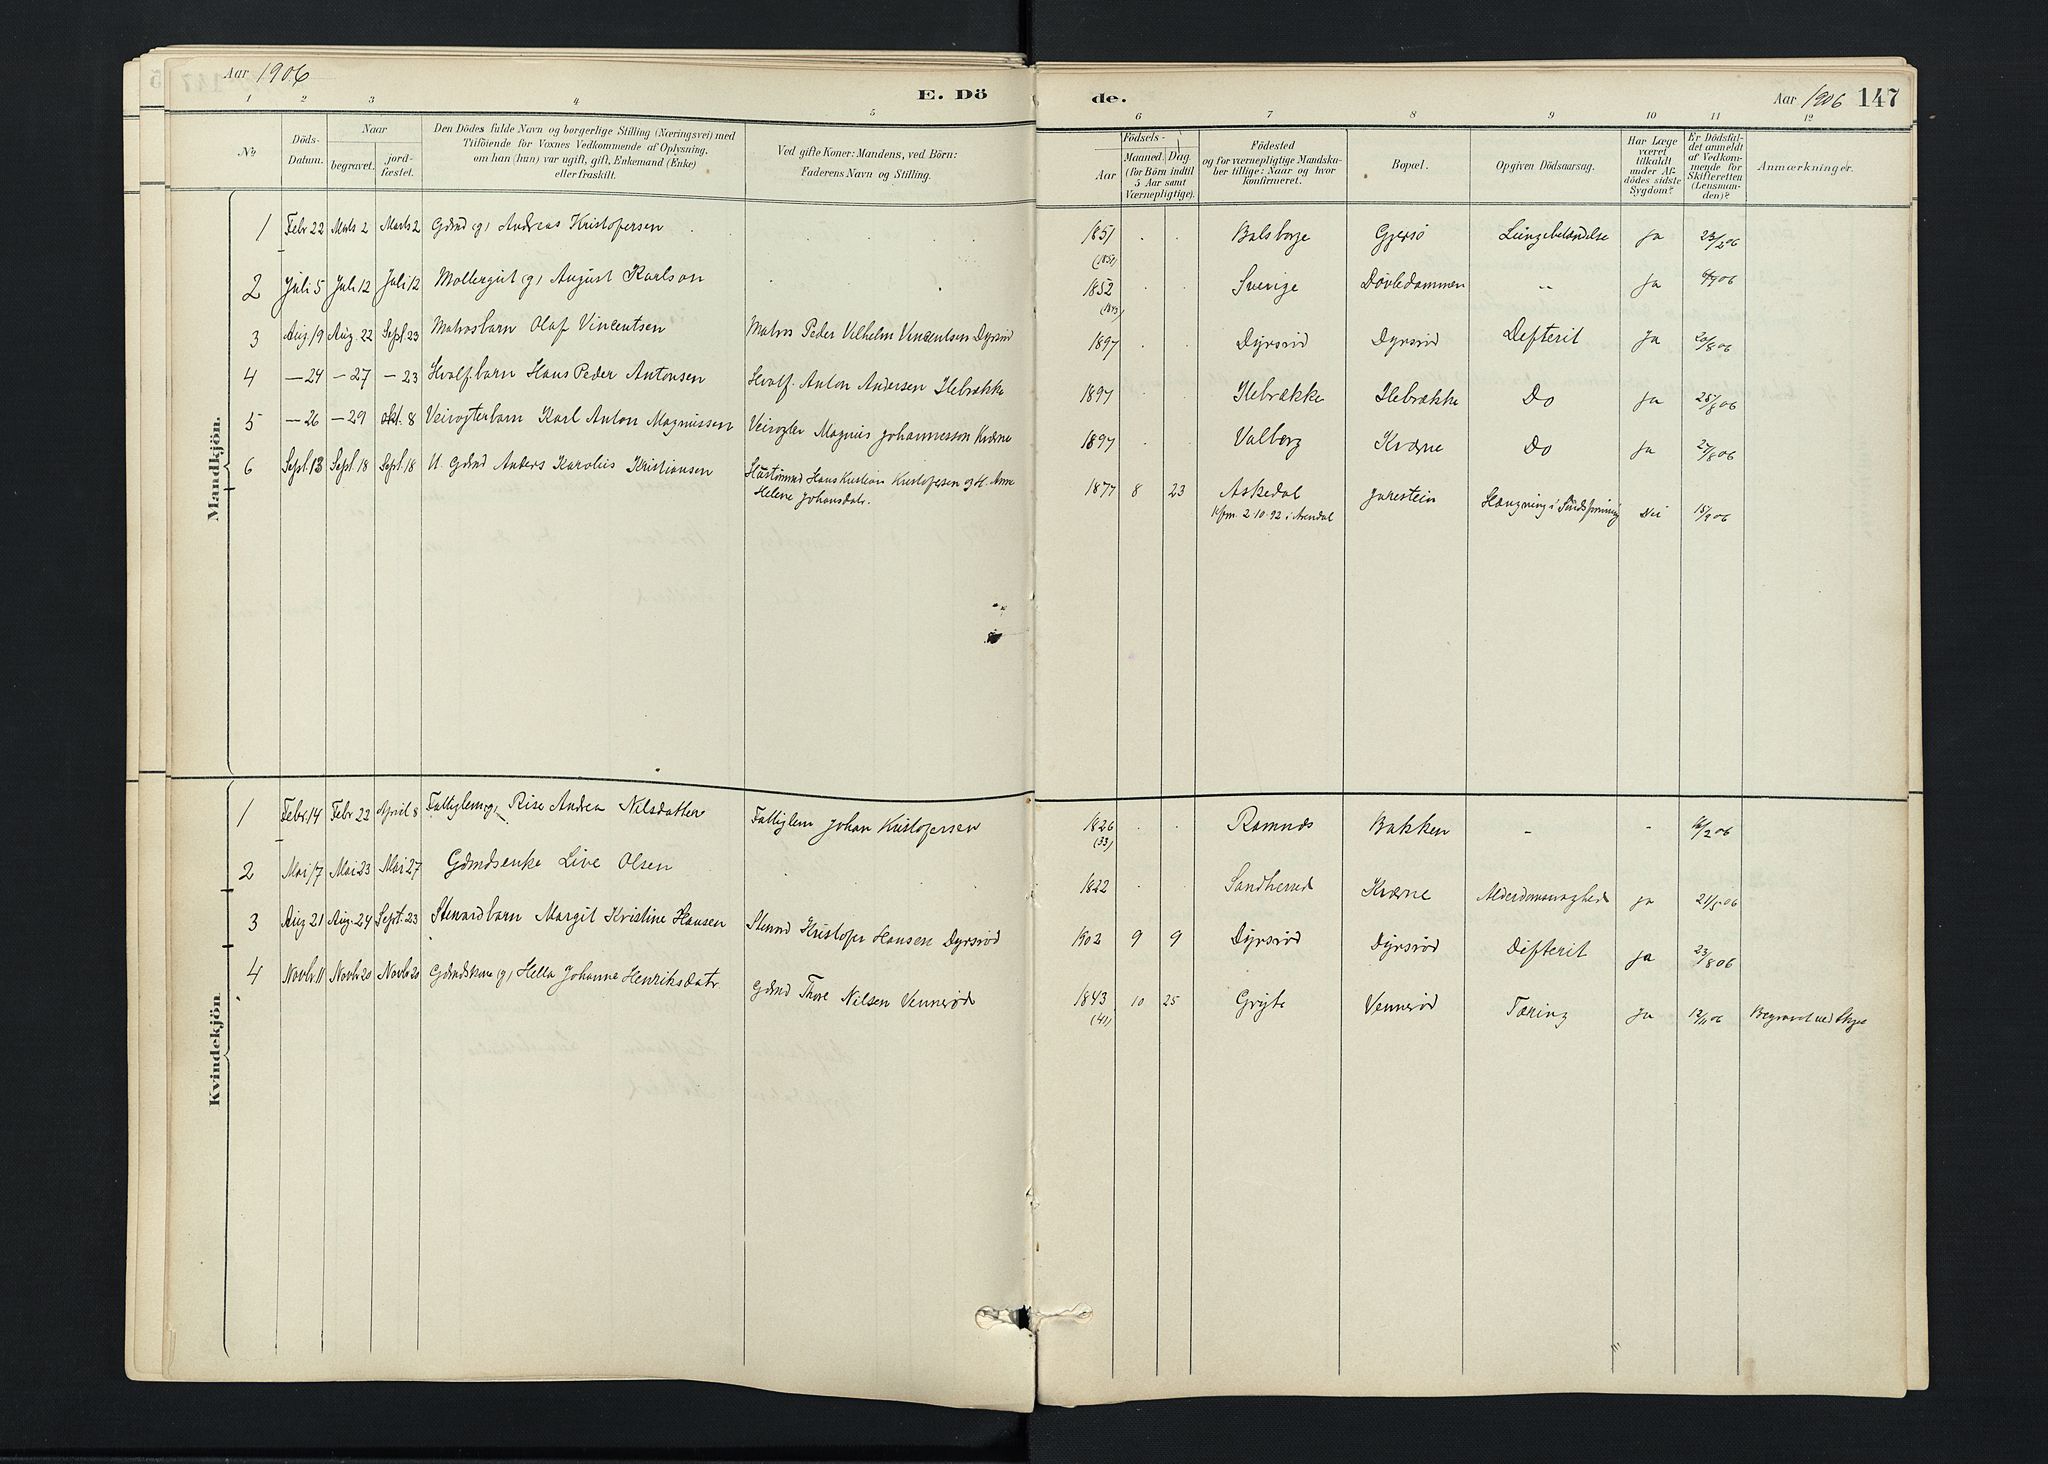 Aar 1906
E. Dö
de.
Aar 1906 147
1 2 3 4 5
6 7 8 9 10 11 12
No
Döds-Datum.
Naar
begravet.
jordfæstet.
Den Dödes fulde Navn og borgerlige Stilling (Næringsvei) med
Tilföiende för Voxnes Vedkommende af Oplysning,
om han (hun) var ugift, gift, Enkemand (Enke)
eller fraskilt.
Ved gifte Koner: Mandens, ved Börn:
Faderens Navn og Stilling.
Födsels-
Aar
Maaned. Dag
(for Börn indtil
5 Aar samt
Værnepligtige).
Födested
og for værnepligtige Mandska-
ber tillige: Naar og hvor
Konfirmeret.
Bopæl.
Opgiven Dödsaarsag.
Har Læge
været
tilkaldt
under Af-
dödes sidste
Sygdom?
Er Dödsfal-
det anmeldt
af Vedkom-
mende for
Skifteretten
(Lensman-
den)?
Anmærkninger.
Mandkjön.
1 Febr 22 Marts 2 Marts 2 Gdmd (g) Andreas Kristofersen 1851 Balsberge Gjersø Lungebetændelse Ja 23/2 06
(1859)
2 Juli 5 Juli 12 Juli 12 Møllergut (g) August Karlson 1852 Sverige Døvledammen " Ja 6/7 06
(1873)
3 Aug. 19 Aug. 22 Sept. 23 Matrosbarn Olaf Vincentsen Matros Peder Vilhelm Vincentsen Dyrsrød 1897 Dyrsrød Dyrsrød Defterit Ja 20/8 06
4 — 24 — 27 — 23 Hvalf.barn Hans Peder Antonsen Hvalf. Anton Andersen Ilebrække 1897 Ilebrække Ilebrække Do Ja 25/8 06
5 — 26 — 29 Okt. 8 Veivogterbarn Karl Anton Magnussen Veivogter Magnus Johannesson Kværne 1897 Valberg Kværne Do Ja 27/8 06
6 Sept. 13 Sept. 18 Sept. 18 U. Gdmd Anders Karolius Kristiansen Hustømmd Hans Kristian Kristofersen og H. Anne
Helene Johansdatr. 1877 8 23 Askedal Jarestein Hængning i Sindsforvirring Nei 15/9 06
Kfm. 2.10.92 i Arendal
Kvindekjön
1 Febr. 14 Febr 22 April 8 Fattiglem (g) Rise Andrea Nilsdatter Fattiglem Johan Kristofersen 1826 Ramnæs Bakken - - 16/2 06
(33)
2 Mai 17 Mai 23 Mai 27 Gdmdsenke Live Olsen 1822 Sandherred Kværne Alderdomssvaghed ja 21/5 06
3 Aug 21 Aug. 24 Sept. 23 Stenardbarn Margit Kristine Hansen Stenard Kristofer Hansen Dyrsrød 1902 9 9 Dyrsrød Dyrsrød Difterit ja 23/8 06
4 Novbr 11 Novbr 20 Novbr 20 Gdmdskone (g) Hella Johanne Henriksdatr Gdmd Thore Nilsen Vennerød 1843 10 25 Gryte Vennerød Tæring Ja 12/11 06 Begravet ved Skjee
(41)